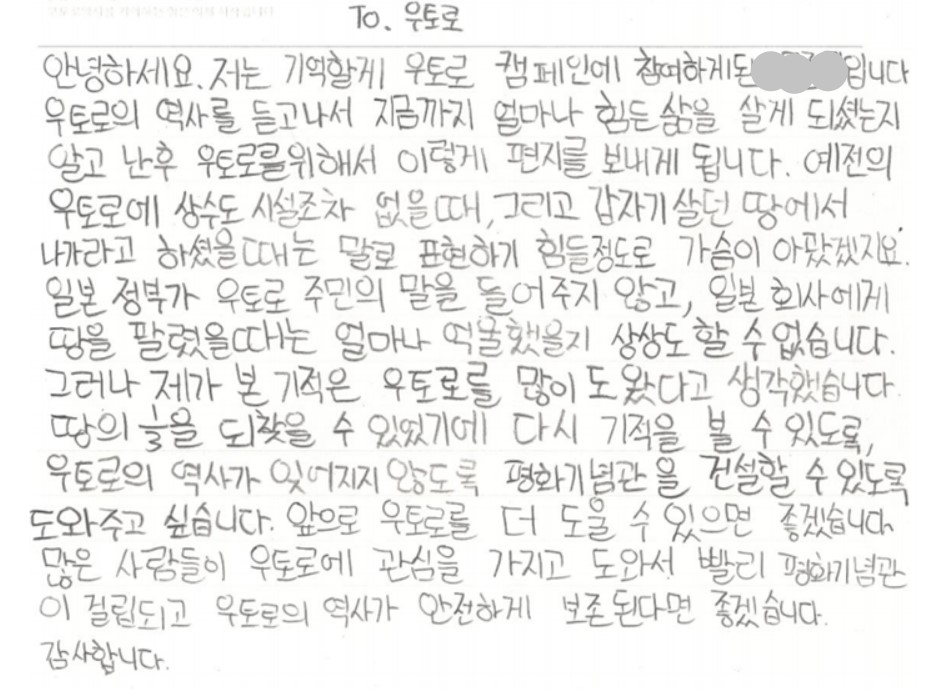 To. 우토로
안녕하세요. 저는 기억할게 우토로 캠페인에 참여하게된 입니다
우토로의 역사를 듣고나서 지금까지 얼마나 힘든 삶을 살게 되셨는지
알고 난후 우토로를위해서 이렇게 편지를 보내게 됩니다. 예전의
우토로에 상수도 시설조차 없을때, 그리고 갑자기 살던 땅에서
나가라고 하셨을때는 말로 표현하기 힘들정도로 가슴이 아팠겠지요.
일본 정부가 우토로 주민의 말을 들어주지 않고, 일본 회사에게
땅을 팔렸을때는 얼마나 억울했을지 상상도 할 수 없습니다.
그러나 제가 본 기적은 우토로를 많이 도왔다고 생각했습니다.
땅의 ⅓을 되찾을 수 있었기에 다시 기적을 볼 수 있도록,
우토로의 역사가 잊어지지 않도록 평화기념관을 건설할 수 있도록
도와주고 싶습니다. 앞으로 우토로를 더 도울 수 있으면 좋겠습니다
많은 사람들이 우토로에 관심을 가지고 도와서 빨리 평화기념관
이 걸립되고 우토로의 역사가 안전하게 보존된다면 좋겠습니다.
감사합니다.